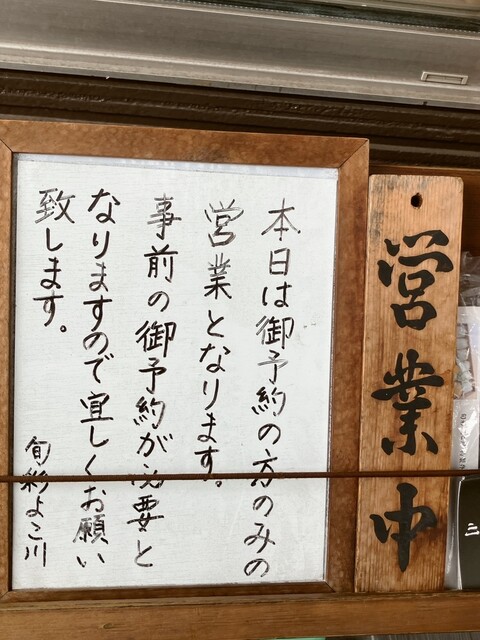 営業中
本日は御予約の方のみの
営業となります。
事前の御予約が必要と
なりますので宜しくお願い
致します。
旬彩よこ川
三